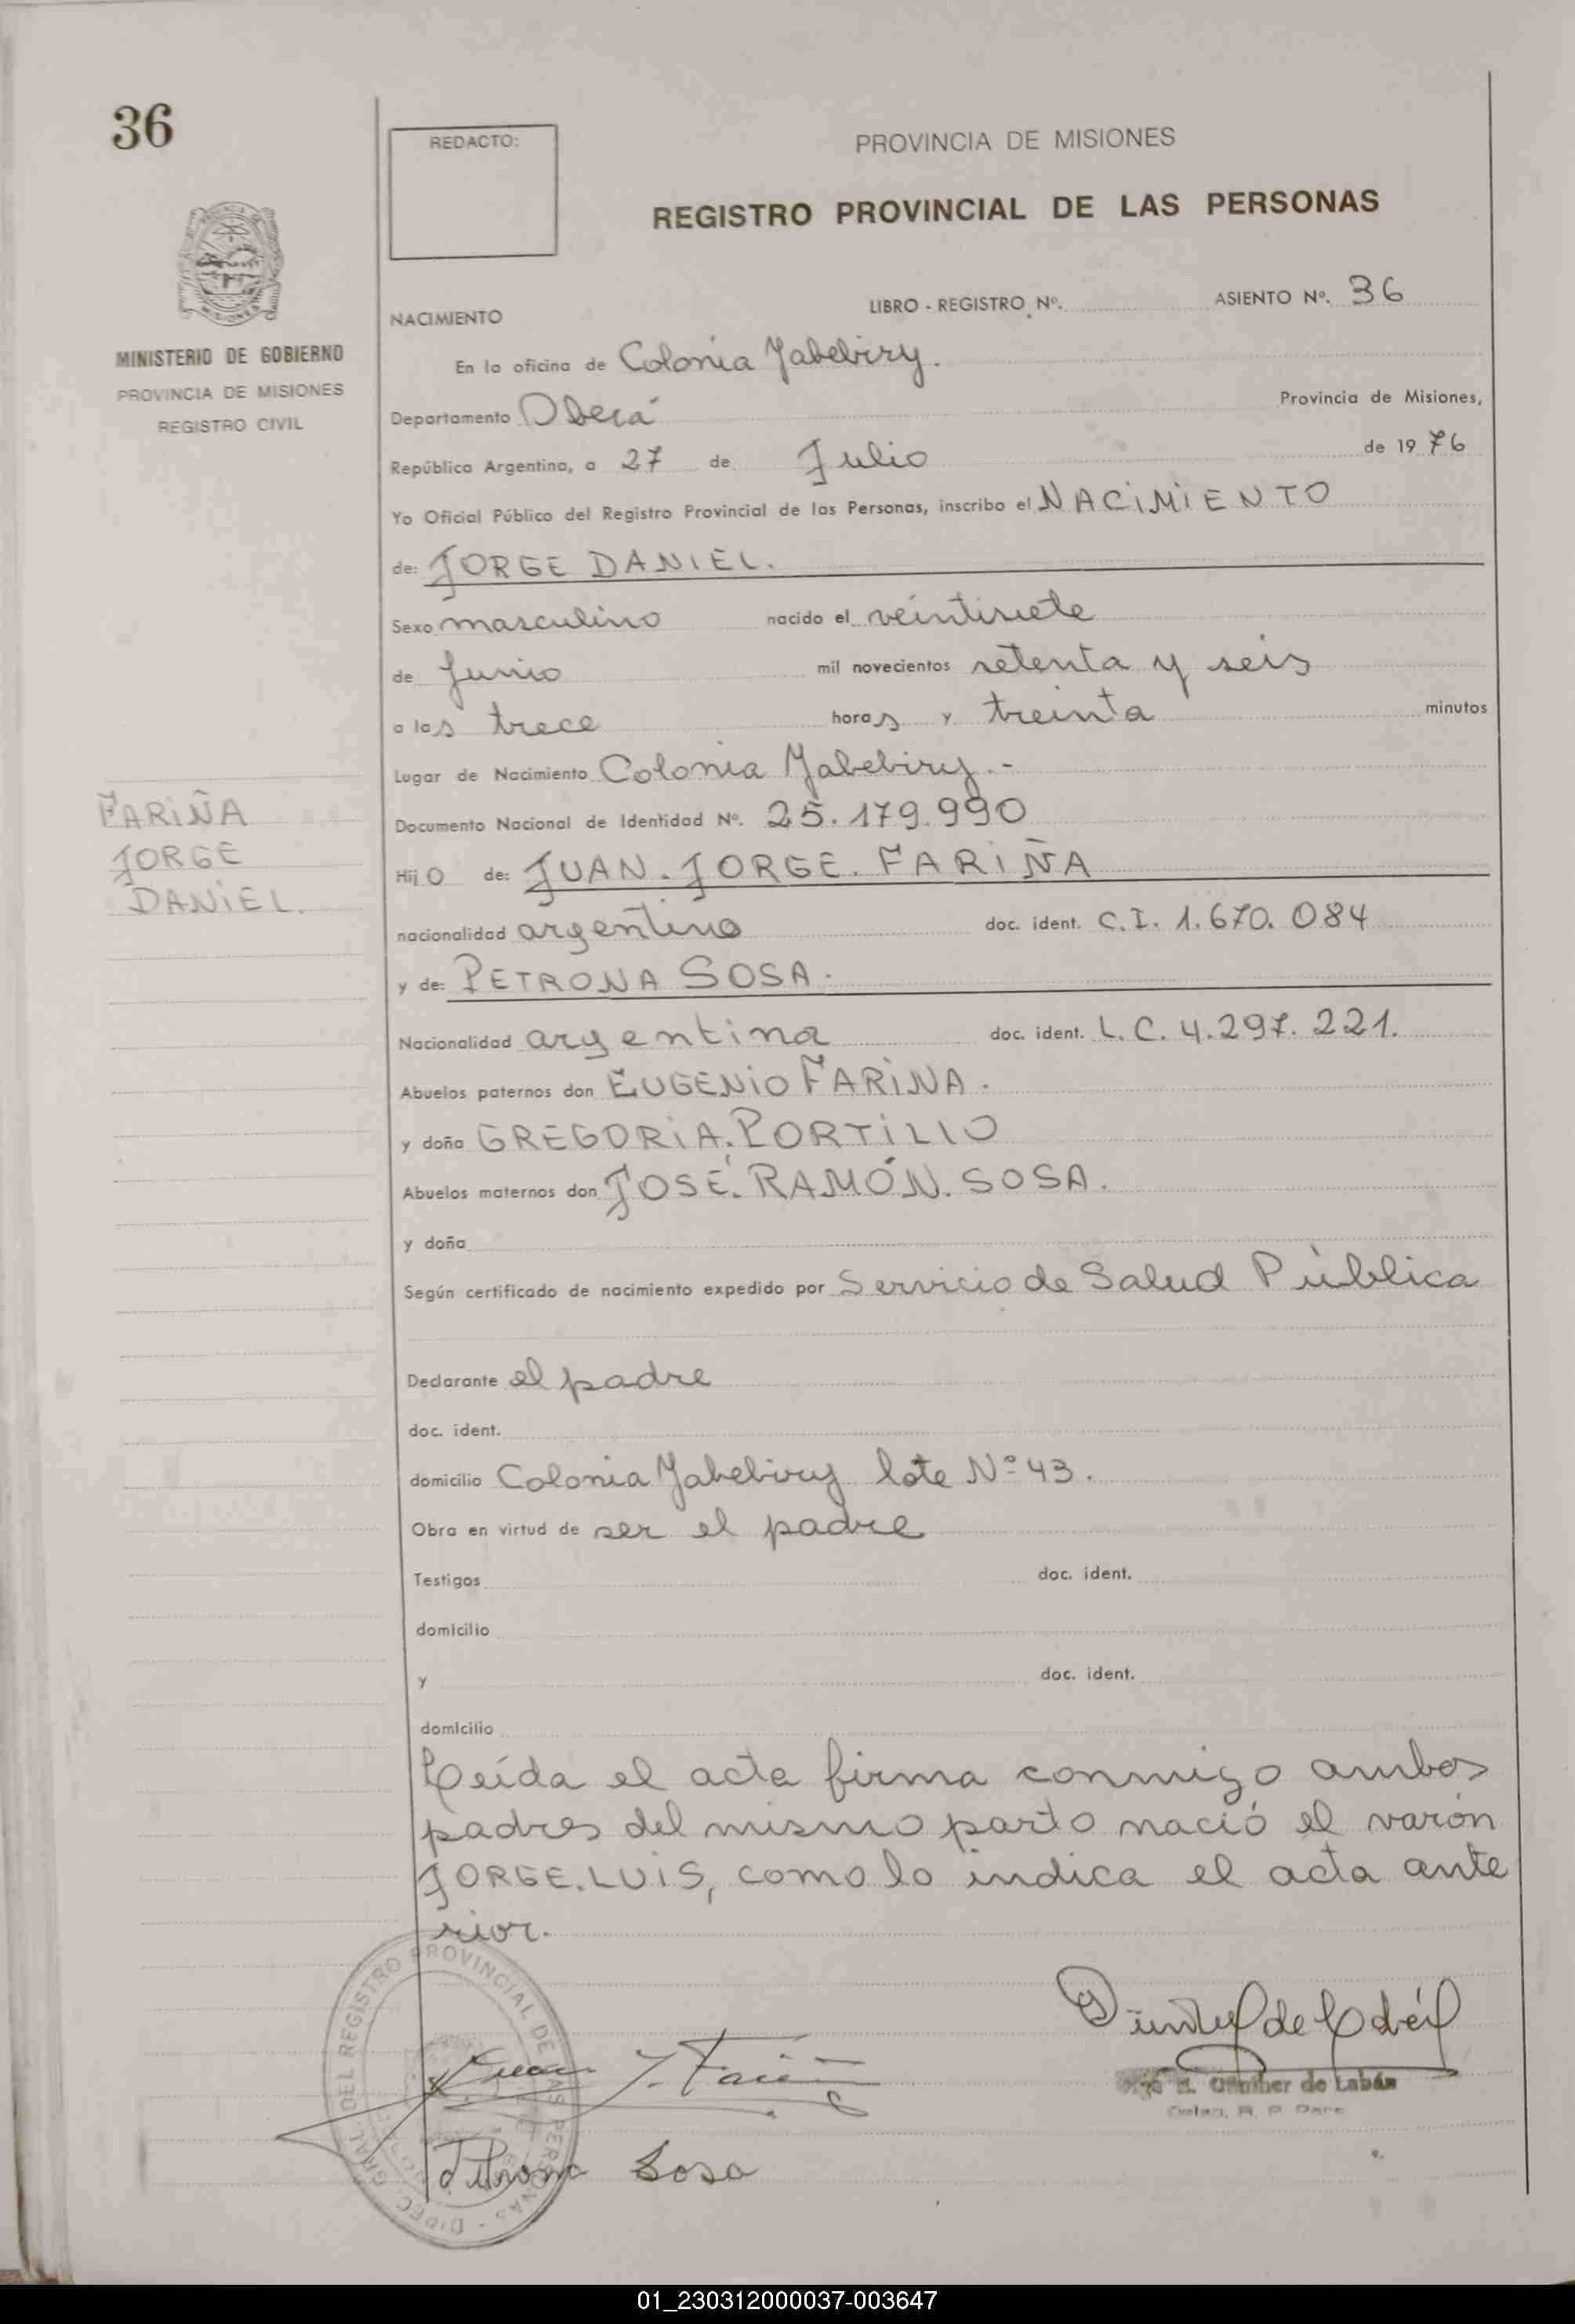 36
REDACTO:
PROVINCIA DE MISIONES
REGISTRO PROVINCIAL DE LAS PERSONAS
MINISTERIO DE GOBIERNO
PROVINCIA DE MISIONES
REGISTRO CIVIL
NACIMIENTO LIBRO - REGISTRO Nº. ASIENTO Nº. 36
En la oficina de Colonia Yabebiry.
Departamento Oberá Provincia de Misiones,
República Argentina, a 27 de Julio de 1976
Yo Oficial Público del Registro Provincial de las Personas, inscribo el NACIMIENTO
de: JORGE DANIEL.
Sexo masculino nacido el veintisiete
de Junio mil novecientos setenta y seis
a las trece horas y treinta minutos
Lugar de Nacimiento Colonia Yabebiry.-
FARIÑA
JORGE
DANIEL.
Documento Nacional de Identidad Nº. 25.179.990
Hijo de: JUAN. JORGE. FARIÑA
nacionalidad argentino doc. ident. C.I. 1.670.084
y de: PETRONA SOSA.
Nacionalidad argentina doc. ident. L.C. 4.297.221.
Abuelos paternos don EUGENIO FARIÑA.
y doña GREGORIA. PORTILLO
Abuelos maternos don JOSÉ. RAMÓN. SOSA.
y doña
Según certificado de nacimiento expedido por Servicio de Salud Pública
Declarante el padre
doc. ident.
domicilio Colonia Yabebiry lote Nº 43.
Obra en virtud de ser el padre
Testigos doc. ident.
domicilio
y doc. ident.
domicilio
Leída el acta firma conmigo ambos
padres del mismo parto nació el varón
JORGE. LUIS, como lo indica el acta ante
rior.
DIREC. GRAL DEL REGISTRO PROVINCIAL DE LAS PERSONAS
Juan J. Fariña
Petrona Sosa
Günther de Labán
01_230312000037-003647